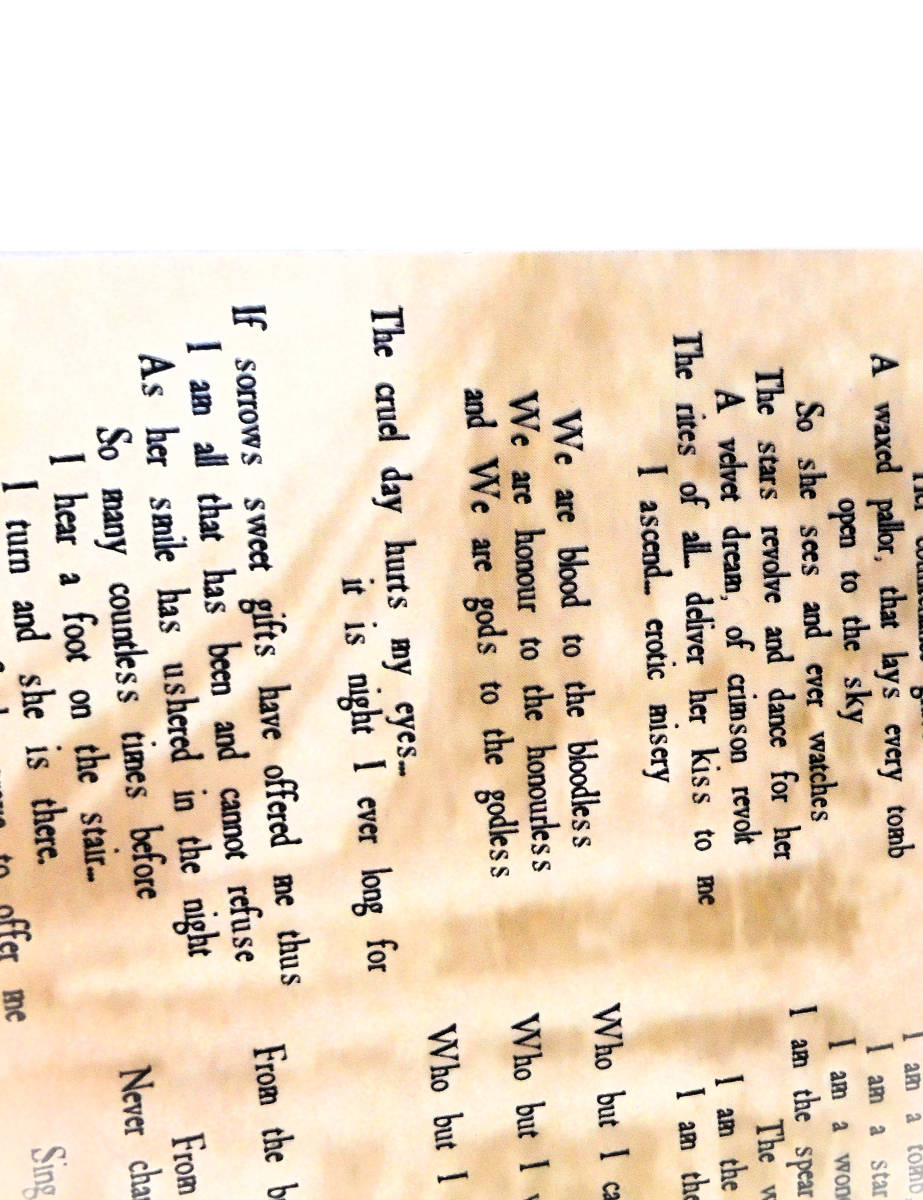 A waxed pallor, that lays every tomb
open to the sky
So she sees and ever watches
The stars revolve and dance for her
A velvet dream, of crimson revolt
The rites of all... deliver her kiss to me
I ascend... erotic misery
We are blood to the bloodless
We are honour to the honourless
and We are gods to the godless
The cruel day hurts my eyes...
it is night I ever long for
If sorrows sweet gifts have offered me thus
I am all that has been and cannot refuse
As her smile has ushered in the night
So many countless times before
I hear a foot on the stair...
I turn and she is there.
to offer me
I am a tomb
I am a star
I am a wor
I am the spear
The
I am the
I am the
Who but I ca
Who but I
Who but I
From the b
From
Never cha
Sing